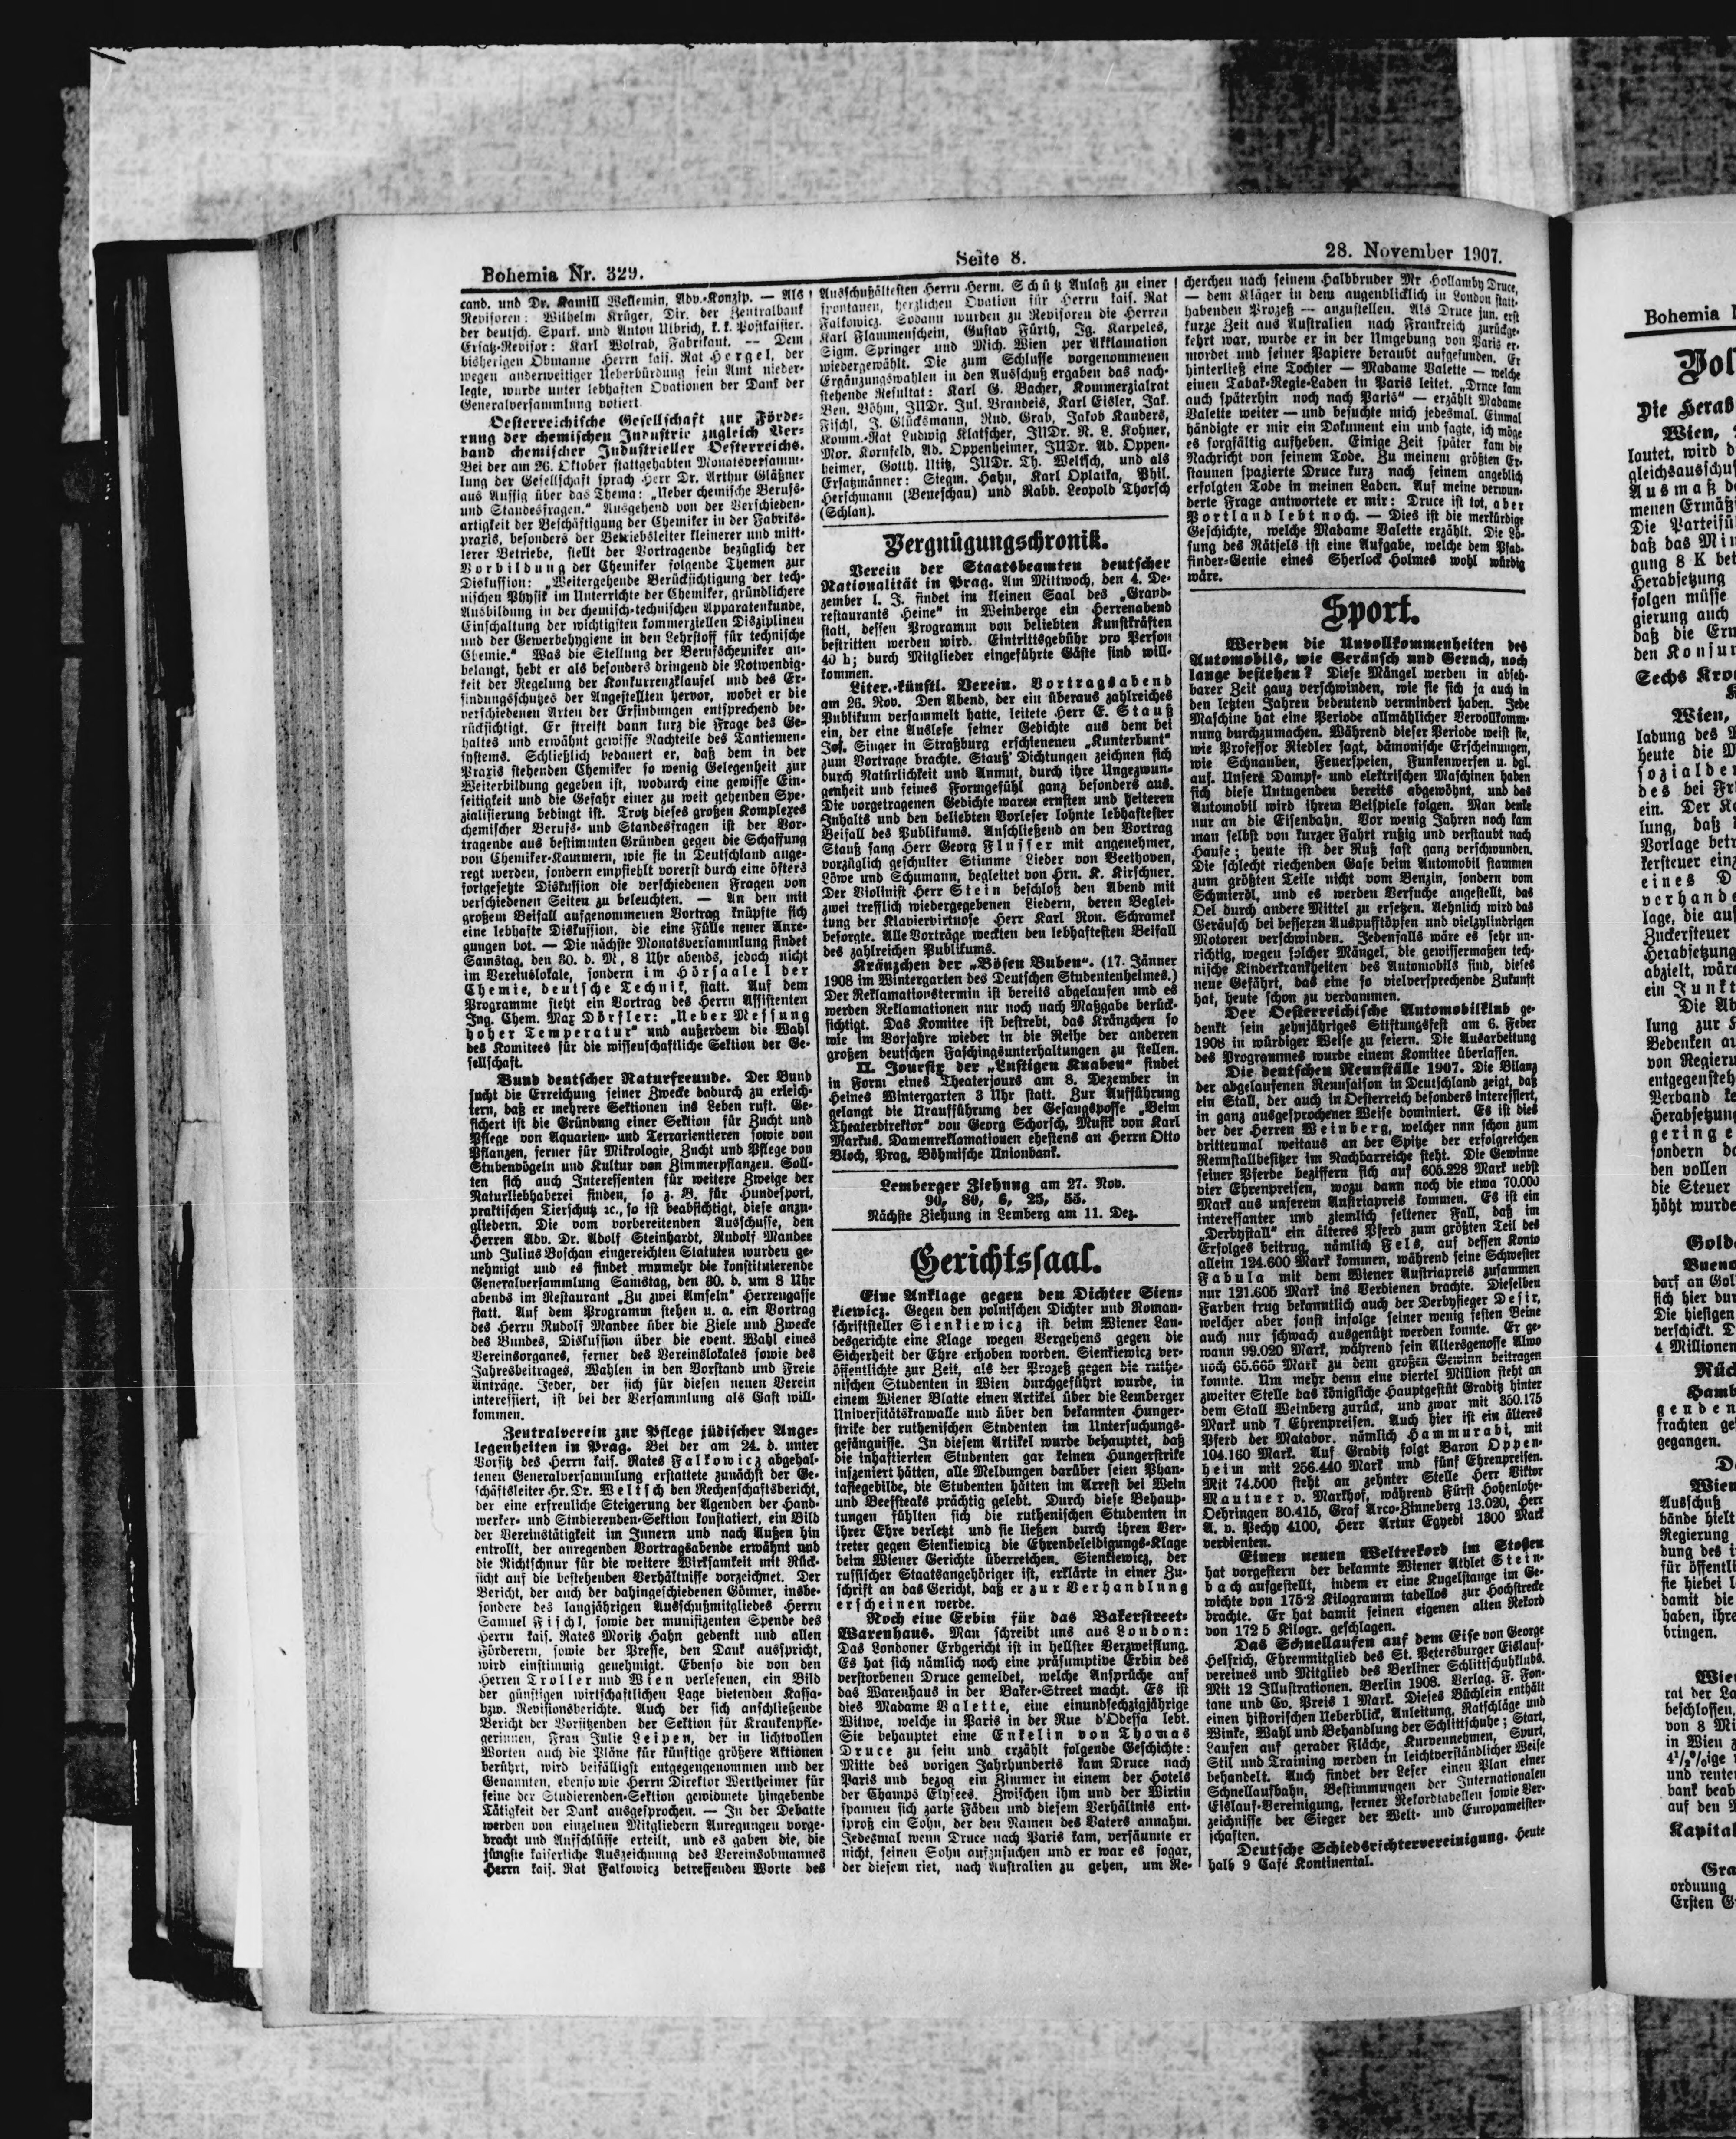 Bohemia Nr. 329.
Seite 8.
28. November 1907.
cand. und Dr. Kamill Weklemin, Adv.-Konzip. — Als
Revisoren: Wilhelm Krüger, Dir. der Zentralbank
der deutsch. Spark. und Anton Ulbrich, k. k. Postkassier.
Ersatz-Revisor: Karl Wolrab, Fabrikant. — Dem
bisherigen Obmanne Herrn kais. Rat Hergel, der
wegen anderweitiger Ueberbürdung sein Amt nieder-
legte, wurde unter lebhaften Ovationen der Dank der
Generalversammlung votiert.
Oesterreichische Gesellschaft zur Förde-
rung der chemischen Industrie zugleich Ver-
band chemischer Industrieller Oesterreichs.
Bei der am 26. Oktober stattgehabten Monatsversamm-
lung der Gesellschaft sprach Herr Dr. Arthur Gläßner
aus Aussig über das Thema: „Ueber chemische Berufs-
und Standesfragen.“ Ausgehend von der Verschieden-
artigkeit der Beschäftigung der Chemiker in der Fabriks-
praxis, besonders der Betriebsleiter kleinerer und mitt-
lerer Betriebe, stellt der Vortragende bezüglich der
Vorbildung der Chemiker folgende Themen zur
Diskussion: „Weitergehende Berücksichtigung der tech-
nischen Physik im Unterrichte der Chemiker, gründlichere
Ausbildung in der chemisch-technischen Apparatenkunde,
Einschaltung der wichtigsten kommerziellen Disziplinen
und der Gewerbehygiene in den Lehrstoff für technische
Chemie.“ Was die Stellung der Berufschemiker an-
belangt, hebt er als besonders dringend die Notwendig-
keit der Regelung der Konkurrenzklausel und des Er-
findungsschutzes der Angestellten hervor, wobei er die
verschiedenen Arten der Erfindungen entsprechend be-
rücksichtigt. Er streift dann kurz die Frage des Ge-
haltes und erwähnt gewisse Nachteile des Tantiemen-
systems. Schließlich bedauert er, daß dem in der
Praxis stehenden Chemiker so wenig Gelegenheit zur
Weiterbildung gegeben ist, wodurch eine gewisse Ein-
seitigkeit und die Gefahr einer zu weit gehenden Spe-
zialisierung bedingt ist. Trotz dieses großen Komplexes
chemischer Berufs- und Standesfragen ist der Vor-
tragende aus bestimmten Gründen gegen die Schaffung
von Chemiker-Kammern, wie sie in Deutschland ange-
regt werden, sondern empfiehlt vorerst durch eine öfters
fortgesetzte Diskussion die verschiedenen Fragen von
verschiedenen Seiten zu beleuchten. — An den mit
großem Beifall aufgenommenen Vortrag knüpfte sich
eine lebhafte Diskussion, die eine Fülle neuer Anre-
gungen bot. — Die nächste Monatsversammlung findet
Samstag, den 30. d. M., 8 Uhr abends, jedoch nicht
im Vereinslokale, sondern im Hörsaale I der
Chemie, deutsche Technik, statt. Auf dem
Programme steht ein Vortrag des Herrn Assistenten
Ing. Chem. Max Dörfler: „Ueber Messung
hoher Temperatur“ und außerdem die Wahl
des Komitees für die wissenschaftliche Sektion der Ge-
sellschaft.
Bund deutscher Naturfreunde. Der Bund
sucht die Erreichung seiner Zwecke dadurch zu erleich-
tern, daß er mehrere Sektionen ins Leben ruft. Ge-
sichert ist die Gründung einer Sektion für Zucht und
Pflege von Aquarien- und Terrarientieren sowie von
Pflanzen, ferner für Mikrologie, Zucht und Pflege von
Stubenvögeln und Kultur von Zimmerpflanzen. Soll-
ten sich auch Interessenten für weitere Zweige der
Naturliebhaberei finden, so z. B. für Hundesport,
praktischen Tierschutz ꝛc., so ist beabsichtigt, diese anzu-
gliedern. Die vom vorbereitenden Ausschusse, den
Herren Adv. Dr. Adolf Steinhardt, Rudolf Mandee
und Julius Boschan eingereichten Statuten wurden ge-
nehmigt und es findet nunmehr die konstituierende
Generalversammlung Samstag, den 30. d. um 8 Uhr
abends im Restaurant „Zu zwei Amseln“ Herrengasse
statt. Auf dem Programm stehen u. a. ein Vortrag
des Herrn Rudolf Mandee über die Ziele und Zwecke
des Bundes, Diskussion über die event. Wahl eines
Vereinsorganes, ferner des Vereinslokales sowie des
Jahresbeitrages, Wahlen in den Vorstand und Freie
Anträge. Jeder, der sich für diesen neuen Verein
interessiert, ist bei der Versammlung als Gast will-
kommen.
Zentralverein zur Pflege jüdischer Ange-
legenheiten in Prag. Bei der am 24. d. unter
Vorsitz des Herrn kais. Rates Falkowicz abgehal-
tenen Generalversammlung erstattete zunächst der Ge-
schäftsleiter Hr. Dr. Weltsch den Rechenschaftsbericht,
der eine erfreuliche Steigerung der Agenden der Hand-
werker- und Studierenden-Sektion konstatiert, ein Bild
der Vereinstätigkeit im Innern und nach Außen hin
entrollt, der anregenden Vortragsabende erwähnt und
die Richtschnur für die weitere Wirksamkeit mit Rück-
sicht auf die bestehenden Verhältnisse vorzeichnet. Der
Bericht, der auch der dahingeschiedenen Gönner, insbe-
sondere des langjährigen Ausschußmitgliedes Herrn
Samuel Fischl, sowie der munifizenten Spende des
Herrn kais. Rates Moritz Hahn gedenkt und allen
Förderern, sowie der Presse, den Dank ausspricht,
wird einstimmig genehmigt. Ebenso die von den
Herren Troller und Wien verlesenen, ein Bild
der günstigen wirtschaftlichen Lage bietenden Kassa-
bzw. Revisionsberichte. Auch der sich anschließende
Bericht der Vorsitzenden der Sektion für Krankenpfle-
gerinnen, Frau Julie Leipen, der in lichtvollen
Worten auch die Pläne für künftige größere Aktionen
berührt, wird beifälligst entgegengenommen und der
Genannten, ebenso wie Herrn Direktor Wertheimer für
seine der Studierenden-Sektion gewidmete hingebende
Tätigkeit der Dank ausgesprochen. — In der Debatte
werden von einzelnen Mitgliedern Anregungen vorge-
bracht und Aufschlüsse erteilt, und es gaben die, die
jüngste kaiserliche Auszeichnung des Vereinsobmannes
Herrn kais. Rat Falkowicz betreffenden Worte des
Ausschußältesten Herrn Herm. Schütz Anlaß zu einer
spontanen, herzlichen Ovation für Herrn kais. Rat
Falkowicz. Sodann wurden zu Revisoren die Herren
Karl Flammenschein, Gustav Fürth, Ig. Karpeles,
Sigm. Springer und Mich. Wien per Akklamation
wiedergewählt. Die zum Schlusse vorgenommenen
Ergänzungswahlen in den Ausschuß ergaben das nach-
stehende Resultat: Karl G. Bacher, Kommerzialrat
Ben. Böhm, JUDr. Jul. Brandeis, Karl Eisler, Jak.
Fischl, J. Glücksmann, Rud. Grab, Jakob Kauders,
Komm.-Rat Ludwig Klatscher, JUDr. N. L. Kohner,
Mor. Kornfeld, Ad. Oppenheimer, JUDr. Ad. Oppen-
heimer, Gotth. Utitz, JUDr. Th. Weltsch, und als
Ersatzmänner: Siegm. Hahn, Karl Oplatka, Phil.
Herschmann (Beneschau) und Rabb. Leopold Thorsch
(Schlan).
Vergnügungschronik.
Verein der Staatsbeamten deutscher
Nationalität in Prag. Am Mittwoch, den 4. De-
zember l. J. findet im kleinen Saal des „Grand-
restaurants Heine“ in Weinberge ein Herrenabend
statt, dessen Programm von beliebten Kunstkräften
bestritten werden wird. Eintrittsgebühr pro Person
40 h; durch Mitglieder eingeführte Gäste sind will-
kommen.
Liter.-künstl. Verein. Vortragsabend
am 26. Nov. Den Abend, der ein überaus zahlreiches
Publikum versammelt hatte, leitete Herr E. Stauß
ein, der eine Auslese seiner Gedichte aus dem bei
Jos. Singer in Straßburg erschienenen „Kunterbunt“
zum Vortrage brachte. Stauß' Dichtungen zeichnen sich
durch Natürlichkeit und Anmut, durch ihre Ungezwun-
genheit und feines Formgefühl ganz besonders aus.
Die vorgetragenen Gedichte waren ernsten und heiteren
Inhalts und den beliebten Vorleser lohnte lebhaftester
Beifall des Publikums. Anschließend an den Vortrag
Stauß sang Herr Georg Flusser mit angenehmer,
vorzüglich geschulter Stimme Lieder von Beethoven,
Löwe und Schumann, begleitet von Hrn. K. Kirschner.
Der Violinist Herr Stein beschloß den Abend mit
zwei trefflich wiedergegebenen Liedern, deren Beglei-
tung der Klaviervirtuose Herr Karl Ron. Schramek
besorgte. Alle Vorträge weckten den lebhaftesten Beifall
des zahlreichen Publikums.
Kränzchen der „Bösen Buben“. (17. Jänner
1908 im Wintergarten des Deutschen Studentenheimes.)
Der Reklamationstermin ist bereits abgelaufen und es
werden Reklamationen nur noch nach Maßgabe berück-
sichtigt. Das Komitee ist bestrebt, das Kränzchen so
wie im Vorjahre wieder in die Reihe der anderen
großen deutschen Faschingsunterhaltungen zu stellen.
II. Jourfix der „Lustigen Knaben“ findet
in Form eines Theaterjours am 8. Dezember in
Heines Wintergarten 3 Uhr statt. Zur Aufführung
gelangt die Uraufführung der Gesangsposse „Beim
Theaterdirektor“ von Georg Schorsch, Musik von Karl
Markus. Damenreklamationen ehestens an Herrn Otto
Bloch, Prag, Böhmische Unionbank.
Lemberger Ziehung am 27. Nov.
90, 80, 6, 25, 55.
Nächste Ziehung in Lemberg am 11. Dez.
Gerichtssaal.
Eine Anklage gegen den Dichter Sien-
kiewicz. Gegen den polnischen Dichter und Roman-
schriftsteller Sienkiewicz ist beim Wiener Lan-
desgerichte eine Klage wegen Vergehens gegen die
Sicherheit der Ehre erhoben worden. Sienkiewicz ver-
öffentlichte zur Zeit, als der Prozeß gegen die ruthe-
nischen Studenten in Wien durchgeführt wurde, in
einem Wiener Blatte einen Artikel über die Lemberger
Universitätskrawalle und über den bekannten Hunger-
strike der ruthenischen Studenten im Untersuchungs-
gefängnisse. In diesem Artikel wurde behauptet, daß
die inhaftierten Studenten gar keinen Hungerstrike
inszeniert hätten, alle Meldungen darüber seien Phan-
tasiegebilde, die Studenten hätten im Arrest bei Wein
und Beefsteaks prächtig gelebt. Durch diese Behaup-
tungen fühlten sich die ruthenischen Studenten in
ihrer Ehre verletzt und sie ließen durch ihren Ver-
treter gegen Sienkiewicz die Ehrenbeleidigungs-Klage
beim Wiener Gerichte überreichen. Sienkiewicz, der
russischer Staatsangehöriger ist, erklärte in einer Zu-
schrift an das Gericht, daß er zur Verhandlung
erscheinen werde.
Noch eine Erbin für das Bakerstreet-
Warenhaus. Man schreibt uns aus London:
Das Londoner Erbgericht ist in hellster Verzweiflung.
Es hat sich nämlich noch eine präsumptive Erbin des
verstorbenen Druce gemeldet, welche Ansprüche auf
das Warenhaus in der Baker-Street macht. Es ist
dies Madame Valette, eine einundsechzigjährige
Witwe, welche in Paris in der Rue d'Odessa lebt.
Sie behauptet eine Enkelin von Thomas
Druce zu sein und erzählt folgende Geschichte:
Mitte des vorigen Jahrhunderts kam Druce nach
Paris und bezog ein Zimmer in einem der Hotels
der Champs Elysees. Zwischen ihm und der Wirtin
spannen sich zarte Fäden und diesem Verhältnis ent-
sproß ein Sohn, der den Namen des Vaters annahm.
Jedesmal wenn Druce nach Paris kam, versäumte er
nicht, seinen Sohn aufzusuchen und er war es sogar,
der diesem riet, nach Australien zu gehen, um Re-
cherchen nach seinem Halbbruder Mr Hollamby Druce,
— dem Kläger in dem augenblicklich in London statt-
habenden Prozeß — anzustellen. Als Druce jun. erst
kurze Zeit aus Australien nach Frankreich zurückge-
kehrt war, wurde er in der Umgebung von Paris er-
mordet und seiner Papiere beraubt aufgefunden. Er
hinterließ eine Tochter — Madame Valette — welche
einen Tabak-Regie-Laden in Paris leitet. „Druce kam
auch späterhin noch nach Paris“ — erzählt Madame
Valette weiter — und besuchte mich jedesmal. Einmal
händigte er mir ein Dokument ein und sagte, ich möge
es sorgfältig aufheben. Einige Zeit später kam die
Nachricht von seinem Tode. Zu meinem größten Er-
staunen spazierte Druce kurz nach seinem angeblich
erfolgten Tode in meinen Laden. Auf meine verwun-
derte Frage antwortete er mir: Druce ist tot, aber
Portland lebt noch. — Dies ist die merkürdige
Geschichte, welche Madame Valette erzählt. Die Lö-
sung des Rätsels ist eine Aufgabe, welche dem Pfad-
finder-Genie eines Sherlock Holmes wohl würdig
wäre.
Sport.
Werden die Unvollkommenheiten des
Automobils, wie Geräusch und Geruch, noch
lange bestehen? Diese Mängel werden in abseh-
barer Zeit ganz verschwinden, wie sie sich ja auch in
den letzten Jahren bedeutend vermindert haben. Jede
Maschine hat eine Periode allmählicher Vervollkomm-
nung durchzumachen. Während dieser Periode weist sie,
wie Professor Riedler sagt, dämonische Erscheinungen,
wie Schnauben, Feuerspeien, Funkenwerfen u. dgl.
auf. Unsere Dampf- und elektrischen Maschinen haben
sich diese Untugenden bereits abgewöhnt, und das
Automobil wird ihrem Beispiele folgen. Man denke
nur an die Eisenbahn. Vor wenig Jahren noch kam
man selbst von kurzer Fahrt rußig und verstaubt nach
Hause; heute ist der Ruß fast ganz verschwunden.
Die schlecht riechenden Gase beim Automobil stammen
zum größten Teile nicht vom Benzin, sondern vom
Schmieröl, und es werden Versuche angestellt, das
Oel durch andere Mittel zu ersetzen. Aehnlich wird das
Geräusch bei besseren Auspufftöpfen und vielzylindrigen
Motoren verschwinden. Jedenfalls wäre es sehr un-
richtig, wegen solcher Mängel, die gewissermaßen tech-
nische Kinderkrankheiten des Automobils sind, dieses
neue Gefährt, das eine so vielversprechende Zukunft
hat, heute schon zu verdammen.
Der Oesterreichische Automobilklub ge-
denkt sein zehnjähriges Stiftungsfest am 6. Feber
1908 in würdiger Weise zu feiern. Die Ausarbeitung
des Programmes wurde einem Komitee überlassen.
Die deutschen Rennställe 1907. Die Bilanz
der abgelaufenen Rennsaison in Deutschland zeigt, daß
ein Stall, der auch in Oesterreich besonders interessiert,
in ganz ausgesprochener Weise dominiert. Es ist dies
der der Herren Weinberg, welcher nun schon zum
drittenmal weitaus an der Spitze der erfolgreichen
Rennstallbesitzer im Nachbarreiche steht. Die Gewinne
seiner Pferde beziffern sich auf 605.228 Mark nebst
vier Ehrenpreisen, wozu dann noch die etwa 70.000
Mark aus unserem Austriapreis kommen. Es ist ein
interessanter und ziemlich seltener Fall, daß im
„Derbystall“ ein älteres Pferd zum größten Teil des
Erfolges beitrug, nämlich Fels, auf dessen Konto
allein 124.600 Mark kommen, während seine Schwester
Fabula mit dem Wiener Austriapreis zusammen
nur 121.605 Mark ins Verdienen brachte. Dieselben
Farben trug bekanntlich auch der Derbysieger Desir,
welcher aber sonst infolge seiner wenig festen Beine
auch nur schwach ausgenützt werden konnte. Er ge-
wann 99.020 Mark, während sein Altersgenosse Alwo
noch 65.665 Mark zu dem großen Gewinn beitragen
konnte. Um mehr denn eine viertel Million steht an
zweiter Stelle das königliche Hauptgestüt Graditz hinter
dem Stall Weinberg zurück, und zwar mit 350.175
Mark und 7 Ehrenpreisen. Auch hier ist ein älteres
Pferd der Matador, nämlich Hammurabi, mit
104.160 Mark. Auf Graditz folgt Baron Oppen-
heim mit 256.440 Mark und fünf Ehrenpreisen.
Mit 74.500 steht an zehnter Stelle Herr Viktor
Mautner v. Markhof, während Fürst Hohenlohe-
Oehringen 30.415, Graf Arco-Zinneberg 13.020, Herr
A. v. Pechy 4100, Herr Artur Egyedi 1300 Mark
verdienten.
Einen neuen Weltrekord im Stoßen
hat vorgestern der bekannte Wiener Athlet Stein-
bach aufgestellt, indem er eine Kugelstange im Ge-
wichte von 175·2 Kilogramm tadellos zur Hochstrecke
brachte. Er hat damit seinen eigenen alten Rekord
von 172 5 Kilogr. geschlagen.
Das Schnellaufen auf dem Eise von George
Helfrich, Ehrenmitglied des St. Petersburger Eislauf-
vereines und Mitglied des Berliner Schlittschuhklubs.
Mit 12 Illustrationen. Berlin 1908. Verlag. F. Fon-
tane und Co. Preis 1 Mark. Dieses Büchlein enthält
einen historischen Ueberblick, Anleitung, Ratschläge und
Winke, Wahl und Behandlung der Schlittschuhe; Start,
Laufen auf gerader Fläche, Kurvennehmen, Spurt,
Stil und Training werden in leichtverständlicher Weise
behandelt. Auch findet der Leser einen Plan einer
Schnellaufbahn, Bestimmungen der Internationalen
Eislauf-Vereinigung, ferner Rekordtabellen sowie Ver-
zeichnisse der Sieger der Welt- und Europameister-
schaften.
Deutsche Schiedsrichtervereinigung. Heute
halb 9 Café Kontinental.
Bohemia
Vol
Die Herab
Wien,
lautet, wird d
gleichsausschu
Ausmaß de
menen Ermäßi
Die Parteifü
daß das Min
gung 8 K bet
Herabsetzung
folgen müsse
gierung auch
daß die Ern
den Konsur
Sechs Kro
Wien,
ladung des
heute die M
sozialde
des bei Fr
ein. Der K
lung, daß
Vorlage betr
kersteuer ein
eines D
verhand
lage, die au
Zuckersteuer
Herabsetzung
abzielt, wäre
ein Junkt
Die Ab
lung zur
Bedenken au
von Regieru
entgegensteh
Verband
Herabsetzun
geringe
sondern da
den vollen
die Steuer
höht wurde
Gold
Bueno
darf an Gol
sich hier dur
Die hiesigen
verschickt. D
4 Millionen
Rüc
Hamb
genden
frachten ge
gegangen.
D
Wien
Ausschuß
bände hielt
Regierung
dung des i
für öffentli
sie hiebei
damit die
haben, ihre
bringen.
Wie
rat der La
beschlossen,
von 8 Mi
in Wien z
4½%ige
und rente
bank beab
auf den A
Kapital
Gra
ordnung
Ersten G